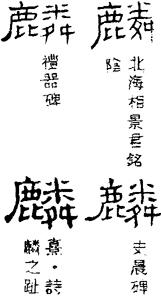 麟
北海相景君銘
陰
麟
禮器碑
麟
史晨碑
麟
熹·詩
麟之趾